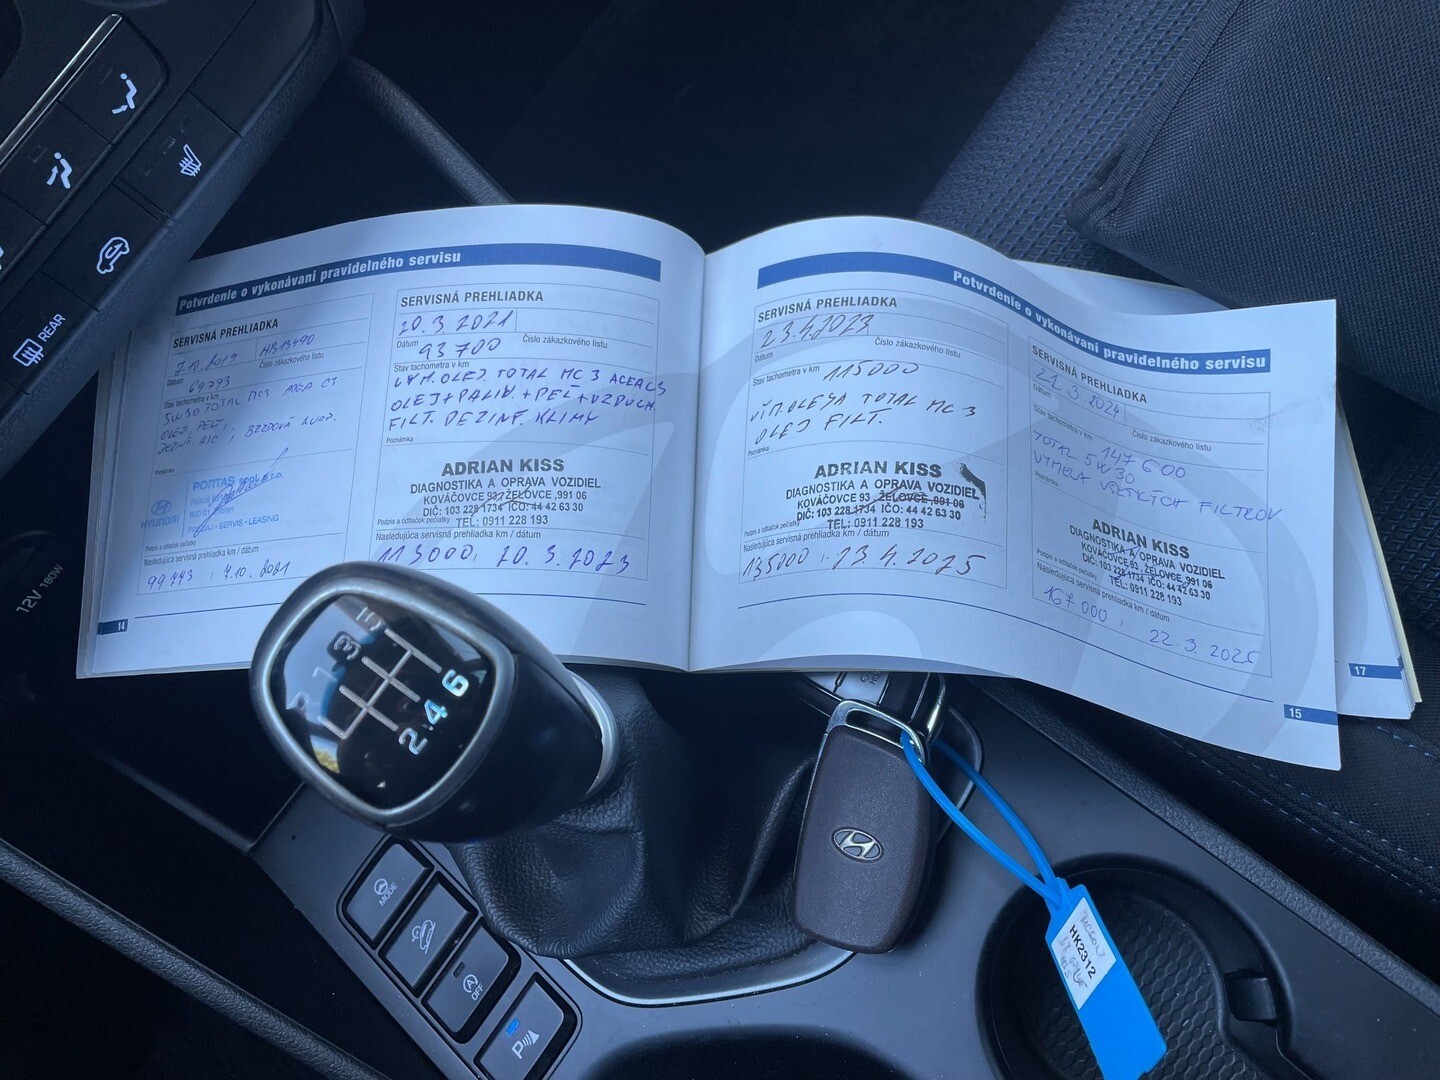 Potvrdenie o vykonávaní pravidelného servisu
SERVISNÁ PREHLIADKA
7.10.2019
Dátum
Číslo zákazkového listu
69793
Stav tachometra v km
5W30 TOTAL MC3 ACEA C3
OLEJ, PEĽ,
Poznámka
HYUNDAI
PONTAS spol. s r.o.
PREDAJ - SERVIS - LEASING
Podpis a odtlačok pečiatky
Nasledujúca servisná prehliadka km / dátum
99793 , 7.10.2021
14
SERVISNÁ PREHLIADKA
20.3.2021
Dátum
Číslo zákazkového listu
93 700
Stav tachometra v km
VÝM. OLEJ. TOTAL MC 3 ACEA C3
OLEJ + PALIV. + PEĽ + VZDUCH.
FILT. DEZINF. KLIMY
Poznámka
ADRIAN KISS
DIAGNOSTIKA A OPRAVA VOZIDIEL
KOVÁČOVCE 93, ŽELOVCE ,991 06
DIČ: 103 228 1734 IČO: 44 42 63 30
TEL: 0911 228 193
Podpis a odtlačok pečiatky
Nasledujúca servisná prehliadka km / dátum
113000, 20.3.2023
Potvrdenie o vykonávaní pravidelného servisu
SERVISNÁ PREHLIADKA
23.4.2023
Dátum
Číslo zákazkového listu
115000
Stav tachometra v km
VÝM. OLEJA TOTAL MC 3
OLEJ FILT.
Poznámka
ADRIAN KISS
DIAGNOSTIKA A OPRAVA VOZIDIEL
KOVÁČOVCE 93 ,ŽELOVCE ,991 06
DIČ: 103 228 1734 IČO: 44 42 63 30
TEL: 0911 228 193
Podpis a odtlačok pečiatky
Nasledujúca servisná prehliadka km / dátum
135000 , 23.4.2025
SERVISNÁ PREHLIADKA
21.3.2024
Dátum
Číslo zákazkového listu
147600
Stav tachometra v km
TOTAL 5W30
VÝMENA VŠETKÝCH FILTROV
Poznámka
ADRIAN KISS
DIAGNOSTIKA A OPRAVA VOZIDIEL
KOVÁČOVCE 93 ,ŽELOVCE ,991 06
DIČ: 103 228 1734 IČO: 44 42 63 30
TEL: 0911 228 193
Podpis a odtlačok pečiatky
Nasledujúca servisná prehliadka km / dátum
167 000 , 22.3.2025
15
17
REAR
12V 180W
1 3 5
2 4 6
MODE
A OFF
P
HK2312